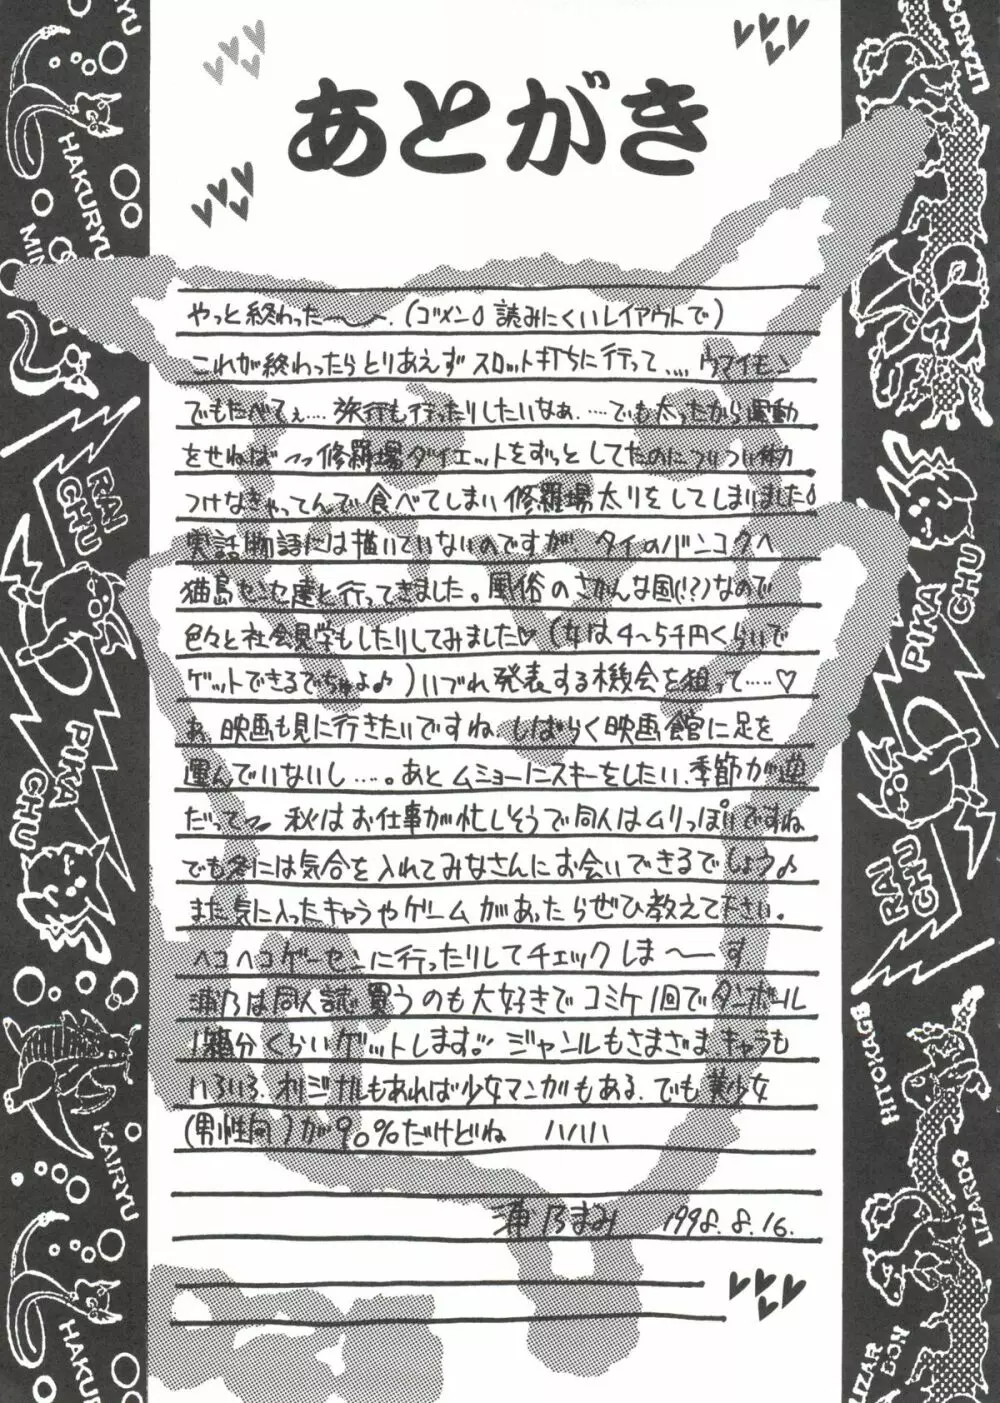 あとがき
やっと終わった〜〜。(ゴメン 読みにくいレイアウトで)
これが終わったらとりあえずスロット打ちに行って、、、、ウマイモン
でもたべてぇ…。旅行も行ったりしたいなぁ、…でも太ったから運動
をせねば〜っ 修羅場ダイエットをずっとしてたのについつい体力
つけなきゃってんで食べてしまい修羅場太りをしてしまいました
実話物語には描いていないのですが、タイのバンコクへ
猫島センセ達と行ってきました。風俗のさかんな国(!?)なので
色々と社会見学もしたりしてみました♡(女は4〜5千円くらいで
ゲットできるでちゅよ♪)いづれ発表する機会を狙って……♡
あ、映画も見に行きたいですね、しばらく映画館に足を
運んでいないし…。あとムショーにスキーをしたい、季節が逆
だってっ 秋はお仕事が忙しそうで同人はムリっぽいですね
でも冬には気合を入れてみなさんにお会いできるでしょう♪
また気に入ったキャラやゲームがあったらぜひ教えて下さい。
ヘコヘコゲーセンに行ったりしてチェックしま〜〜す
浦乃は同人誌買うのも大好きでコミケ1回でダンボール
1箱分くらいゲットします。ジャンルもさまざま、キャラも
いろいろ、オリジナルもあれば少女マンガもある、でも美少女
(男性向)が90%だけどね ハハハ
浦乃まみ 1998.8.16.
HAKURYU
MIN
RAI
CHU
PIKA
CHU
KAIRYU
HAKURYU
LIZARDO
PIKA
CHU
RAI
CHU
HITOKAGE
LIZARDO
LIZAR
DON